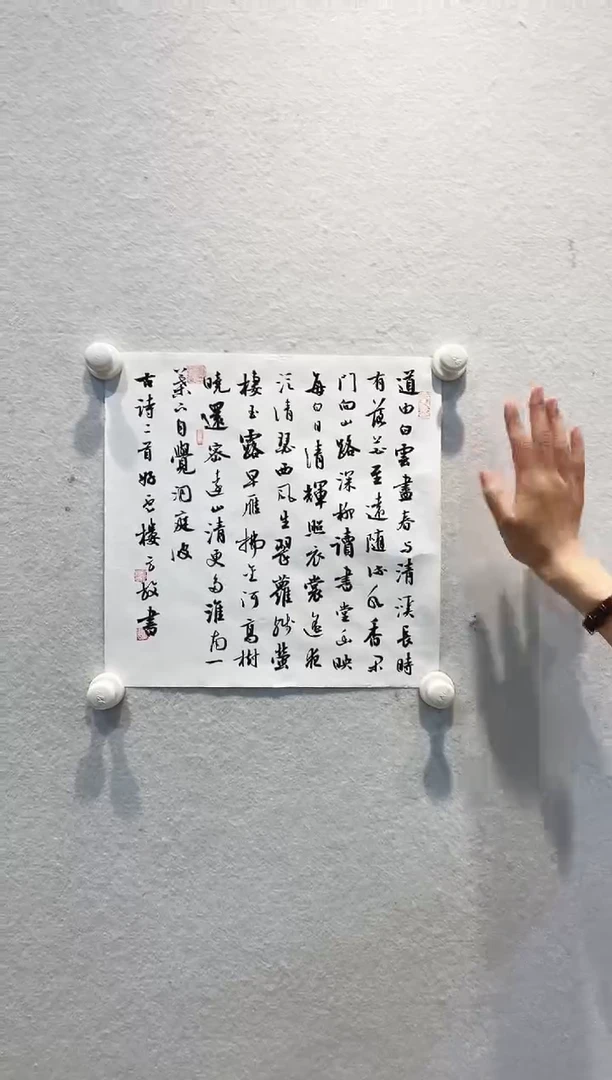 道由白雲盡春与清溪長時
有落花至遠随流水香閑
门向山路深柳讀書堂幽映
每白日清輝照衣裳遥夜
泛清瑟西风生翠蘿残螢
棲玉露早雁拂金河高樹
晓還密遠山清更多淮南一
葉下自覺洞庭波
古诗二首 楼 書